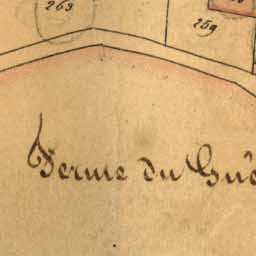 263
259
Ferme du Gué